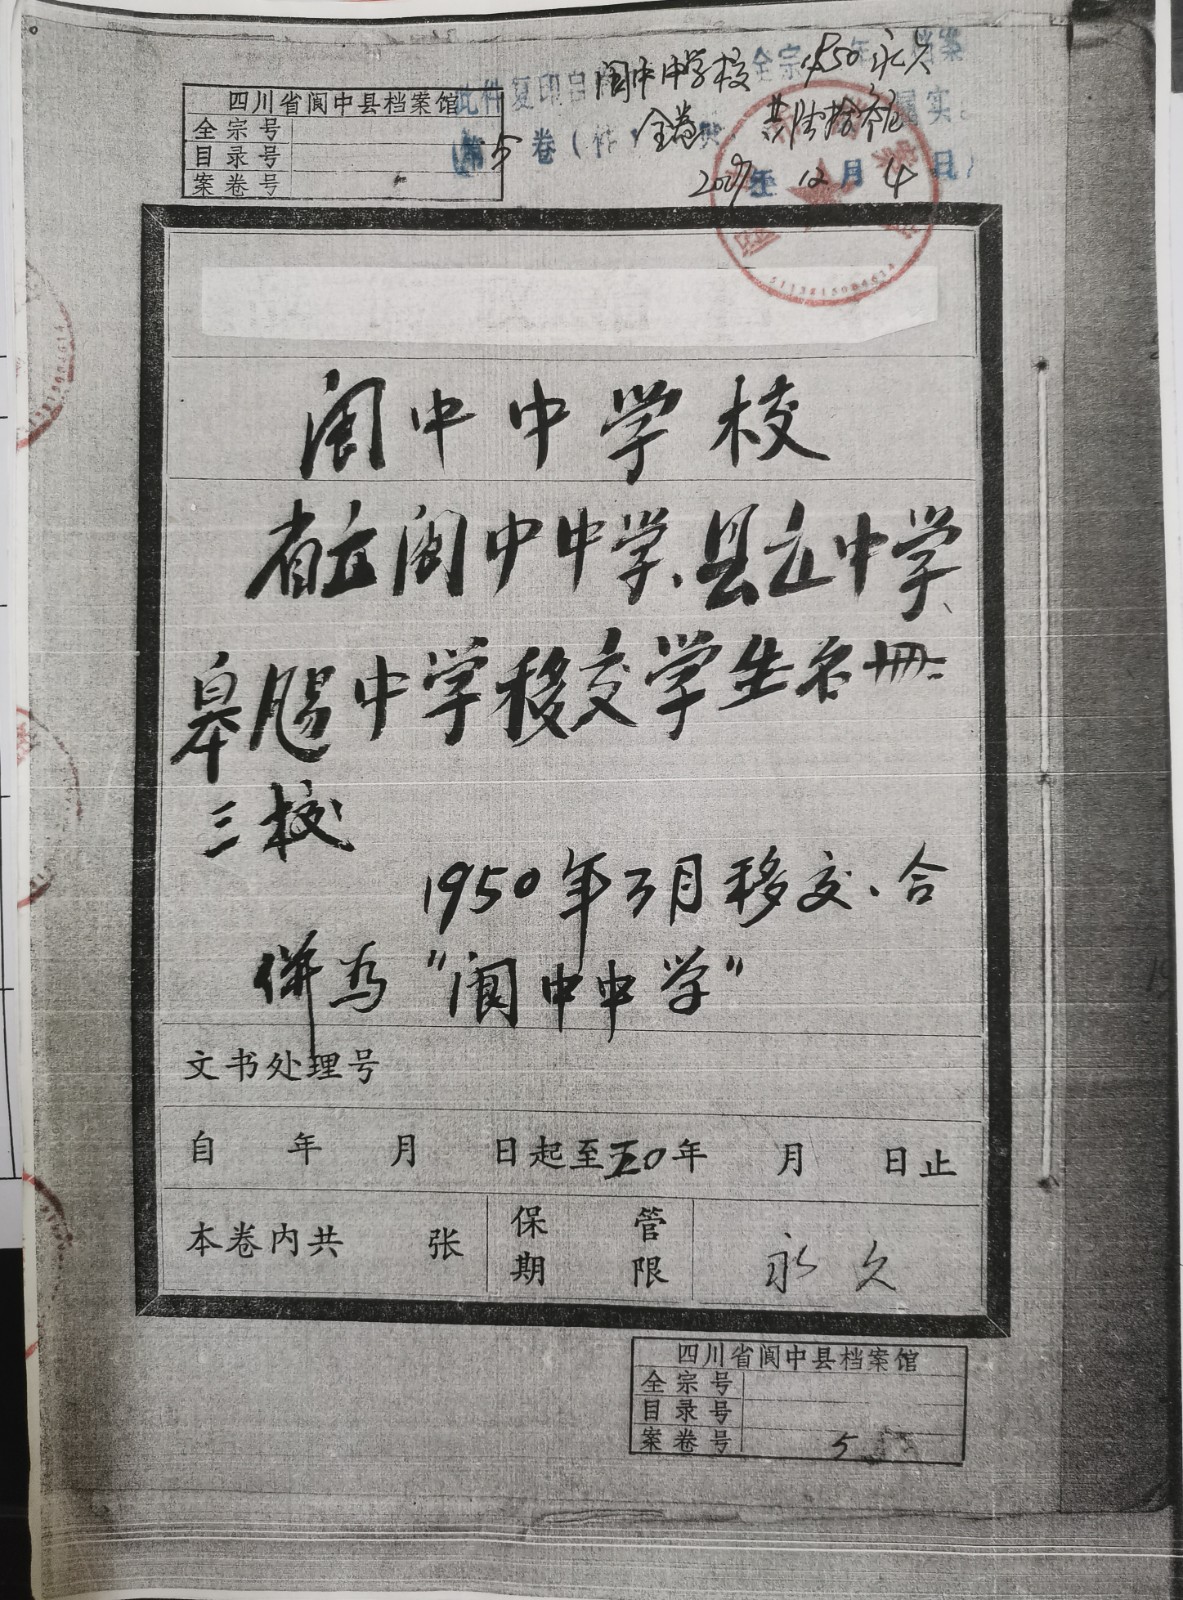 此件复印自阆中中学校全宗1950年永久档案
第5卷(件)全卷 共
属实。
12月4日
四川省阆中县档案馆
全宗号
目录号
案卷号
5113815004614
阆中中学校
省立阆中中学、县立中学、
阜阳中学移交学生名册
三校
1950年3月移交、合
併为"阆中中学"
文书处理号
自 年 月 日起至五0年 月 日止
本卷内共 张 保管期限 永久
四川省阆中县档案馆
全宗号
目录号
案卷号 5